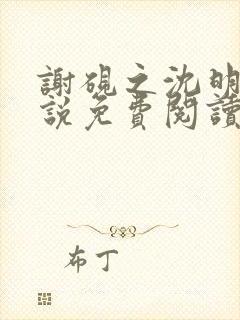 謝硯之沈明
説免費閱讀
布丁